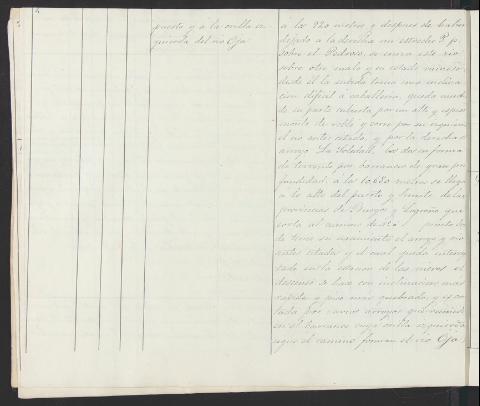 puerto y á la orilla iz
quierda del rio Oja
á la 920 metros y despues de haber
dejado a la derecha un estrecho P. p.
sobre el Pedroso, se cruza este rio
sobre otro malo y en estado ruinoso
desde él la subida toma una inclina
cion dificil á caballeria, queda
su parte cubierta por un alto y espeso
monte de roble y corre por su izquierda
el rio antes citado, y por la derecha el
arroyo La Soledad, los dos en forma
de torrente por barrancos de gran pro
fundidad; á la 10,680 metros se llega
á lo alto del puerto y limite de las
provincias de Burgos y Logroño que
corta al camino de
de tiene su nacimiento el arroyo y rio
antes citados y el cual queda intercep
tado en la estacion de las nieves el
descenso se hace con inclinacion mas
rapida y piso mas quebrado, y es cor
tada por varios arroyos que reunidos
en el barranco cuya orilla izquierda
sigue el camino forman el rio Oja,